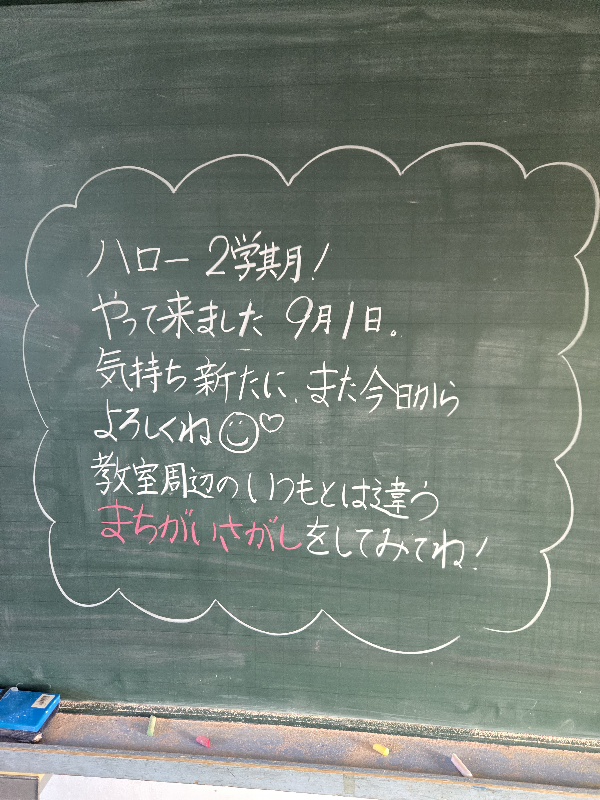 ハロー 2学期!
やって来ました 9月1日。
気持ち新たに、また今日から
よろしくね☺♡
教室周辺のいつもとは違う
まちがいさがしをしてみてね!